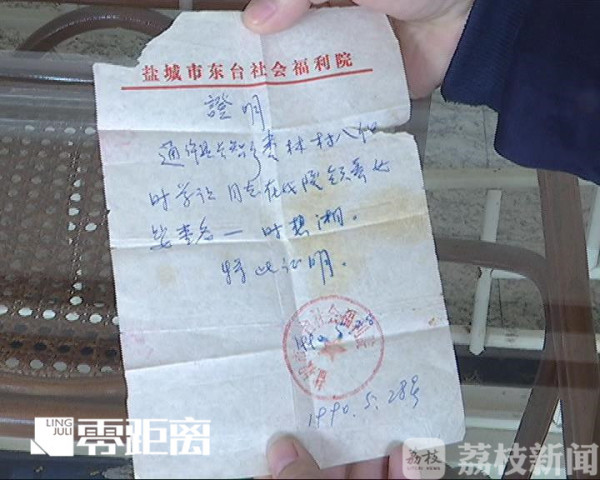 盐城市东台社会福利院
證明
枣林村八组
时学 同志在我院领养女
婴壹名一时想湘。
特此证明。
社会福利
1990.5.28号
LING
JULI
零距离
荔枝
荔枝新闻